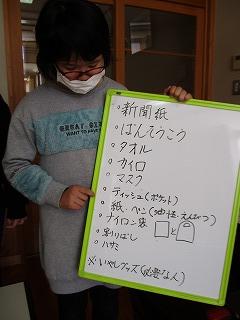 GREAT
WANT TO HAVE
・新聞紙
・ばんそうこう
・タオル
・カイロ
・マスク
・ティッシュ(ポケット)
・紙・ペン(油性・えんぴつ)
・ナイロン袋 と
・割りばし
・ハサミ
※いやしグッズ(必要な人)